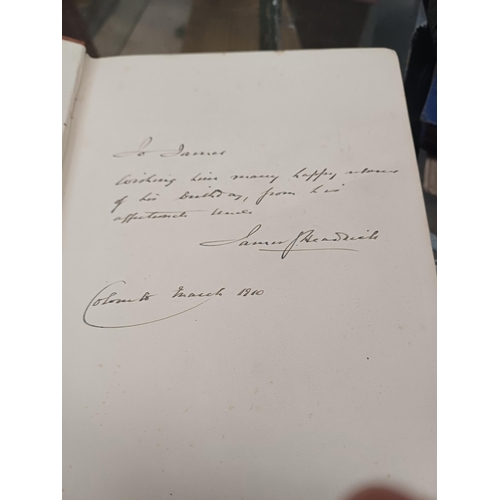 To James
Wishing him many happy returns
of his birthday, from his
affectionate Uncle
James J Headrick
Colombo March 1910